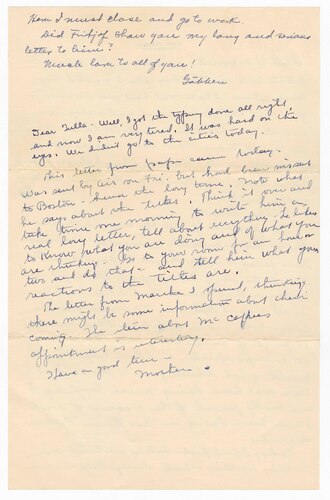 Now I must close and go to work.
Did Fritjof show you my long and serious
letter to him?
Much love to all of you!
Dear Tilla - Well, I got the typing done all right,
and now I am very tired. It was hard on the
eyes. We didn't go to the cities today.
This letter from papa came today.
Was sent by air on Fri. but had been missent
to Boston - hence the long time. Note what
he says about the titles. Think it over and
take time one morning to write him a
real long letter, tell about everything - he likes
to know what you are doing and of what you
are thinking. Go to your room for an hour or
two and do that - and tell him what your
reactions to the titles are.
The letter from I opened, thinking
there might be some information about their
coming. The item about
appointment is interesting.
Have a good time -
Mother.